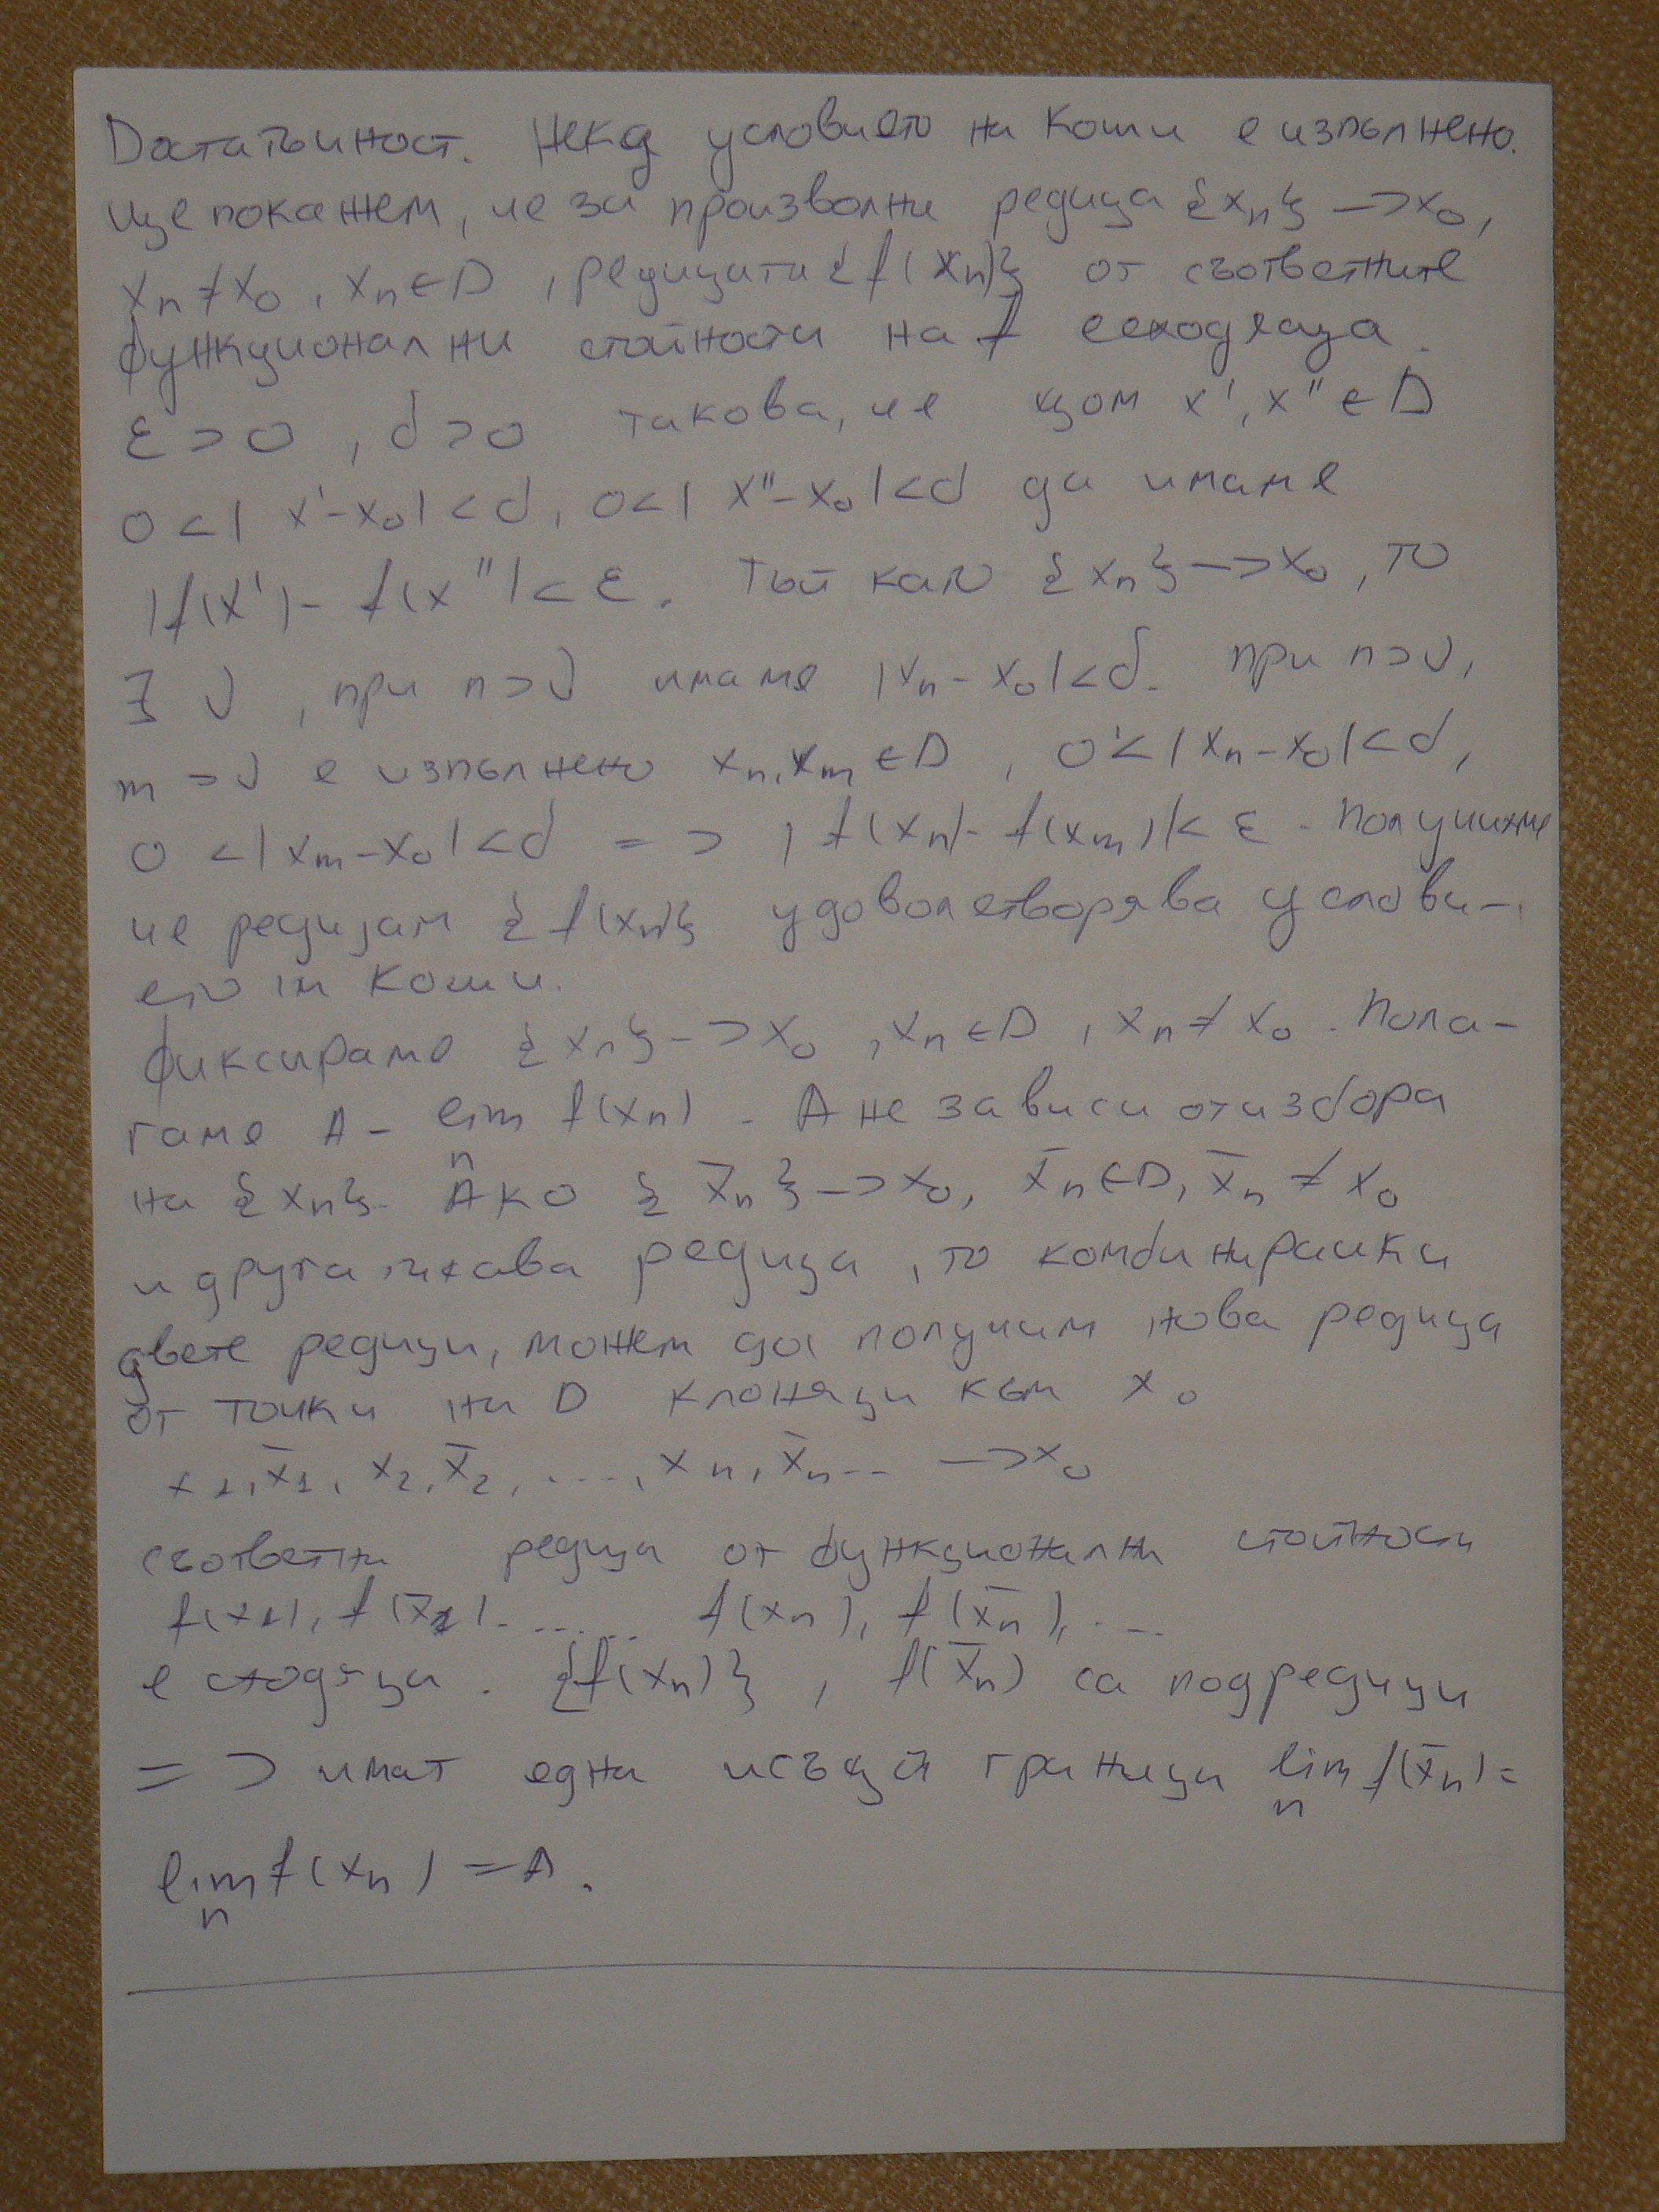 Достатъчност. Нека условието на Коши е изпълнено.
Ще покажем, че за произволна редица {xₙ} → x₀,
xₙ ≠ x₀, xₙ ∈ D, редицата {f(xₙ)} от съответните
функционални стойности на f е сходяща.
ε > 0, δ > 0 такова, че щом x', x'' ∈ D
0 < | x' - x₀ | < δ, 0 < | x'' - x₀ | < δ да имаме
|f(x') - f(x'' | < ε. Тъй като {xₙ} → x₀, то
∃ ν, при n > ν имаме |xₙ - x₀| < δ. при n > ν,
m > ν е изпълнено xₙ, xₘ ∈ D, 0 < | xₙ - x₀ | < δ,
0 < | xₘ - x₀ | < δ => | f(xₙ) - f(xₘ) | < ε. Получихме
че редицата {f(xₙ)} удоволетворява услови-
ето на Коши.
Фиксираме {xₙ} → x₀, xₙ ∈ D, xₙ ≠ x₀. Пола-
гаме A - lim f(xₙ). A не зависи от избора
n
на {xₙ}. Ако { x̄ₙ } → x₀, x̄ₙ ∈ D, x̄ₙ ≠ x₀
и друга такава редица, то комбинирайки
двете редици, можем да получим нова редица
от точки на D клонящи към x₀
x₁, x̄₁, x₂, x̄₂, ..., xₙ, x̄ₙ.. → x₀
съответна редица от функционални стойности
f(x₁), f(x̄₁)....... f(xₙ), f(x̄ₙ), ...
е сходяща. {f(xₙ)}, f(x̄ₙ) са подредици
=> имат една и съща граница lim f(x̄ₙ) =
n
lim f(xₙ) = A.
n